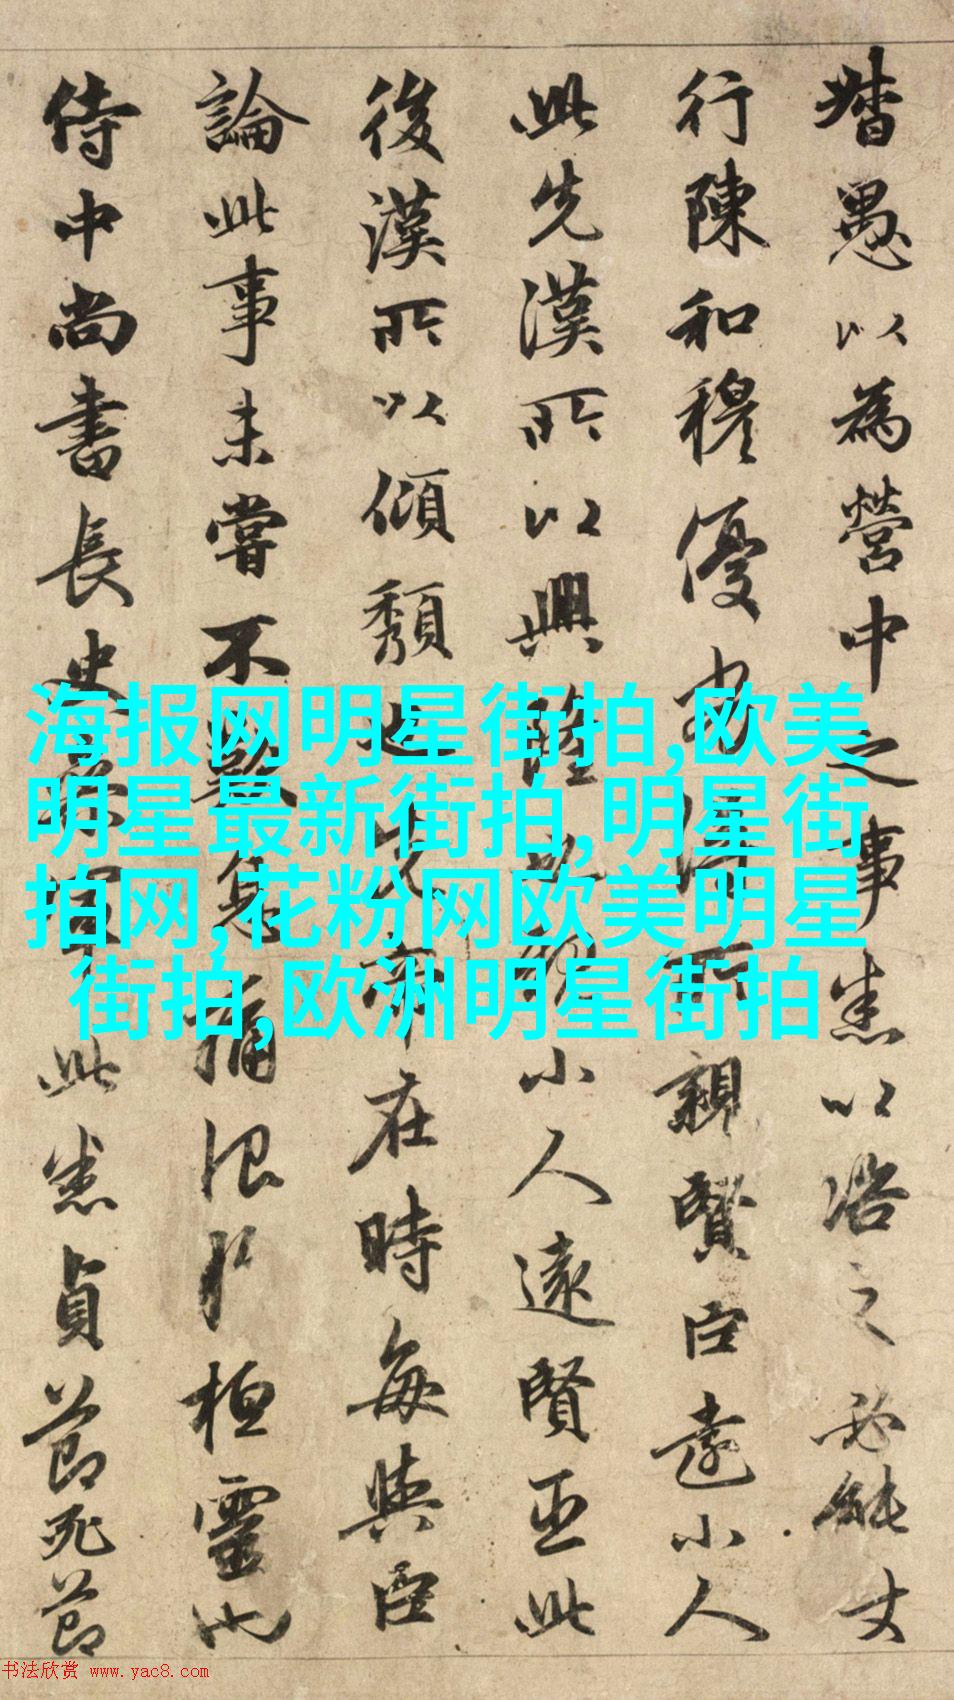 督愚以為營中之事悉以咨之必能
行陳和穆優劣得所親賢臣遠小人
此先漢所以興隆也親小人遠賢臣此
後漢所以傾頹也先帝在時每與臣
論此事未嘗不歎息痛恨於桓靈也
侍中尚書長史參軍此悉貞節死節
海报网明星街拍,欧美
明星最新街拍,明星街
拍网,花粉网欧美明星
街拍,欧洲明星街拍
书法欣赏 www.yac8.com